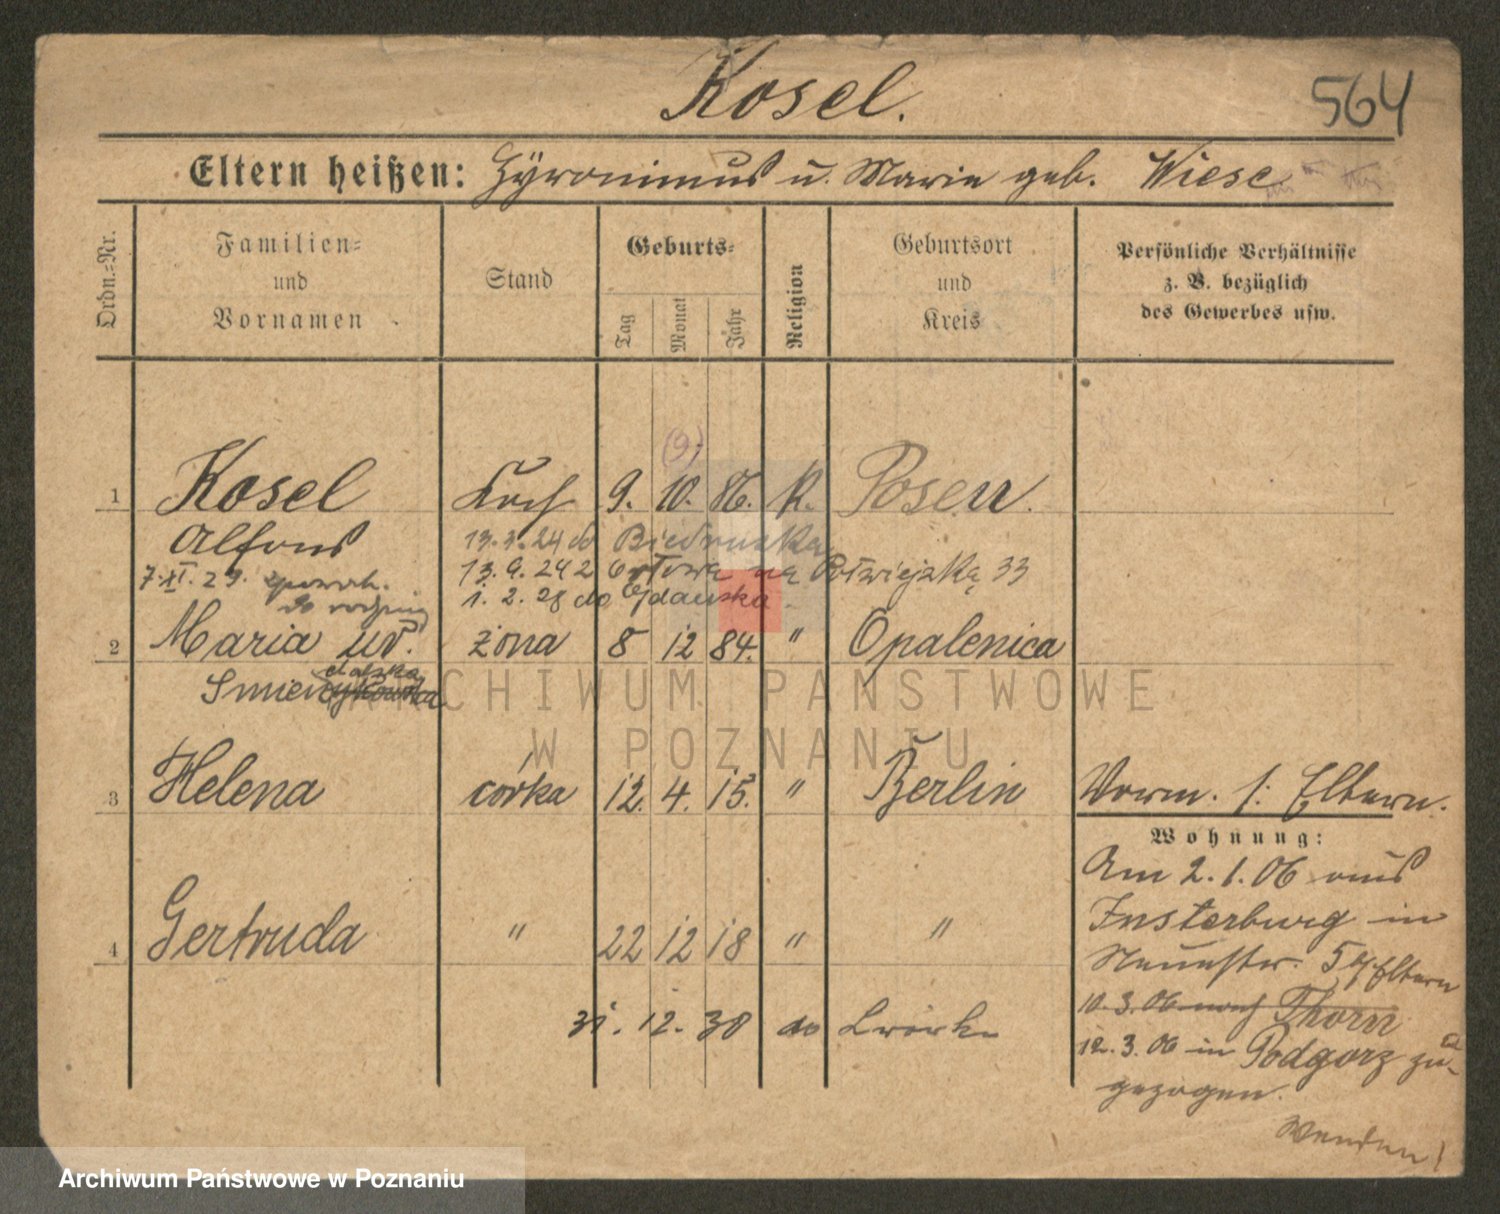 Kosel.
564
Eltern heißen: Hÿronimus u. Marie geb. Wiese
Ordn.=Nr.
Familien=
und
Vornamen
Stand
Geburts=
Tag
Monat
Jahr
Religion
Geburtsort
und
Kreis
Persönliche Verhältnisse
z. B. bezüglich
des Gewerbes usw.
(9)
1 Kosel Koch 9. 10. 86. K. Posen.
Alfons 13.3.24 do Biedruska
7.XI.29. 13.9.24 z na Półwiejską 33
do 1.2.28 do Gdańska
2 Maria ur. żona 8 12 84. " Opalenica
3 Helena córka 12. 4. 15. " Berlin Vorm. s. Eltern.
Wohnung:
Am 2.1.06 aus
Insterburg in
Neuestr. 5 b/Eltern
4 Gertruda " 22 12 18 " "
10.3.06 nach Thorn
31.12.30 do
12.3.06 in Podgorz zu-
gezogen.
Wenden!
ARCHIWUM PAŃSTWOWE
W POZNANIU
Archiwum Państwowe w Poznaniu